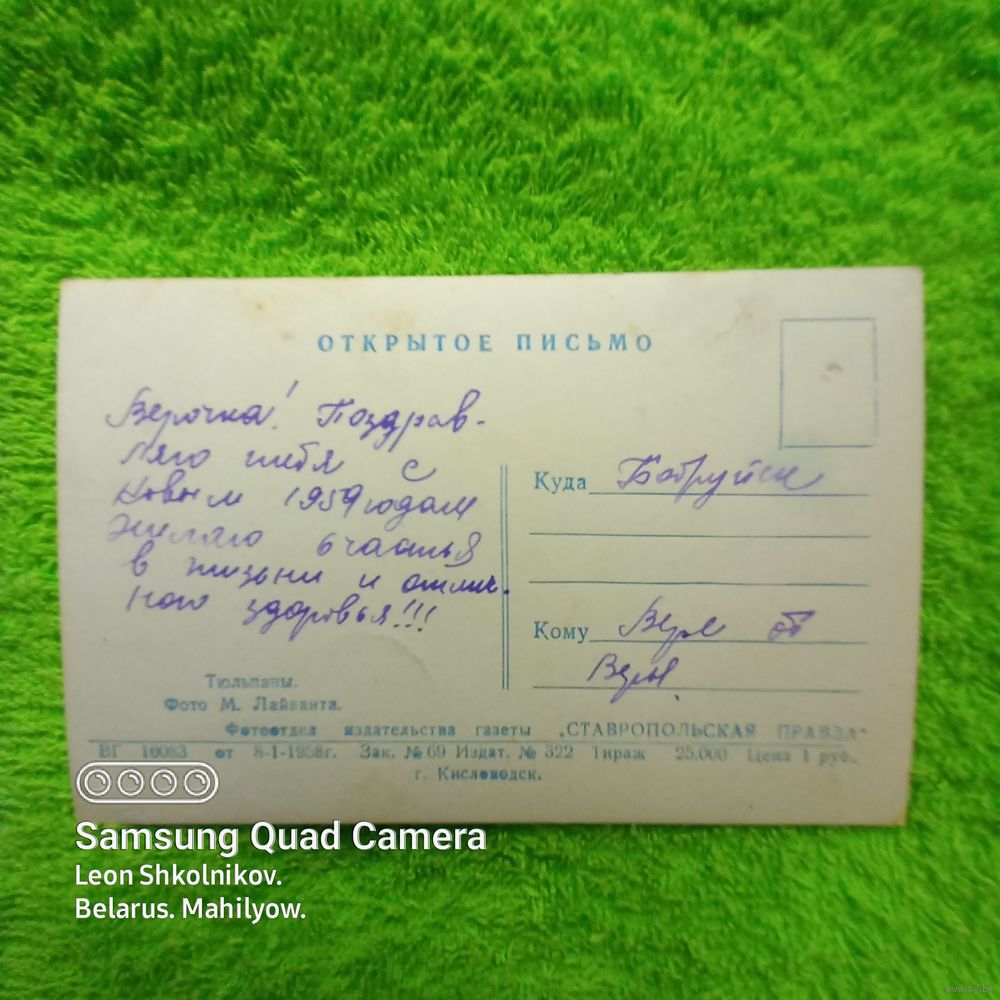 ОТКРЫТОЕ ПИСЬМО
Верочка! Поздрав-
ляю тебя с
Новым 1959 годом
Желаю счастья
в жизни и отлич-
ного здоровья!!!
Куда Бобруйск
Кому Вере от
Веры.
Тюльпаны.
Фото М. Лайванта.
Фотоотдел издательства газеты „СТАВРОПОЛЬСКАЯ ПРАВДА"
ВГ 10083 от 8-1-1958г. Зак. № 69 Издат. № 322 Тираж 25.000 Цена 1 руб.
г. Кисловодск.
Samsung Quad Camera
Leon Shkolnikov.
Belarus. Mahilyow.
www.ay.by